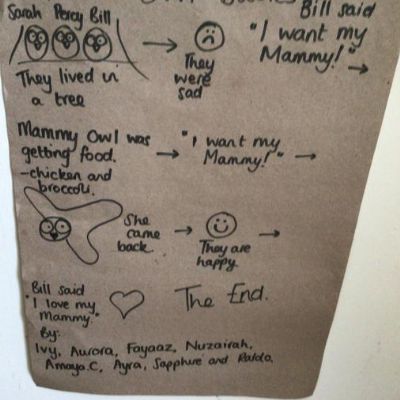 Sarah Percy Bill
They lived in
a tree
They
were
sad
Bill said
"I want my
Mammy!"
Mammy Owl was
getting food.
-chicken and
broccoli.
"I want my
Mammy!"
She
came
back
They are
happy.
Bill said
"I love my
Mammy."
The End.
By:
Ivy, Aurora, Fayaaz, Nuzairah,
Amaya.C, Ayra, Sapphire and